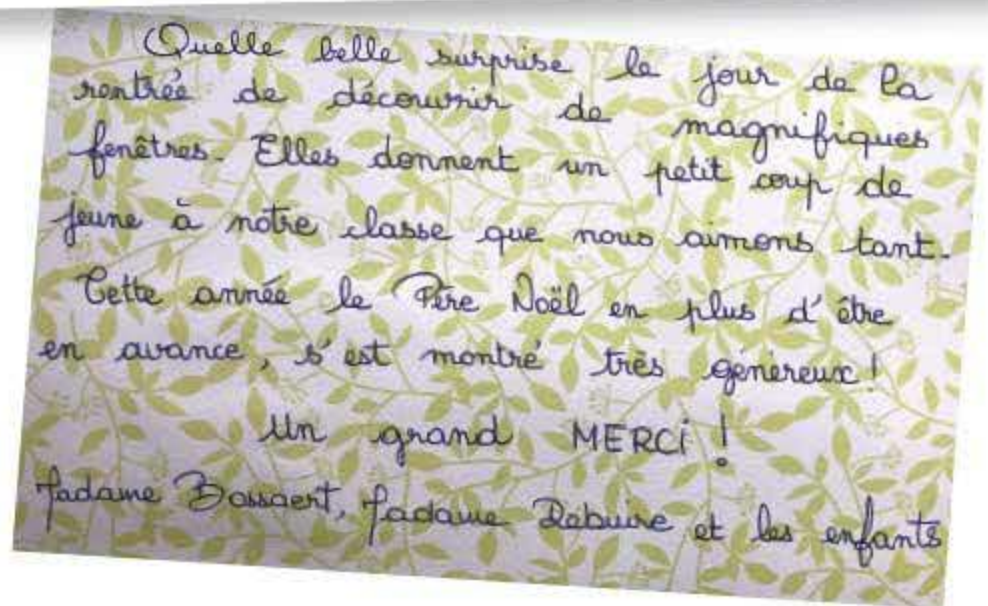 Quelle belle surprise le jour de la
rentrée de découvrir de magnifiques
fenêtres. Elles donnent un petit coup de
jeune à notre classe que nous aimons tant.
Cette année le Père Noël en plus d'être
en avance, s'est montré très généreux !
Un grand MERCi !
Madame Bossaert, Madame Rebuire et les enfants